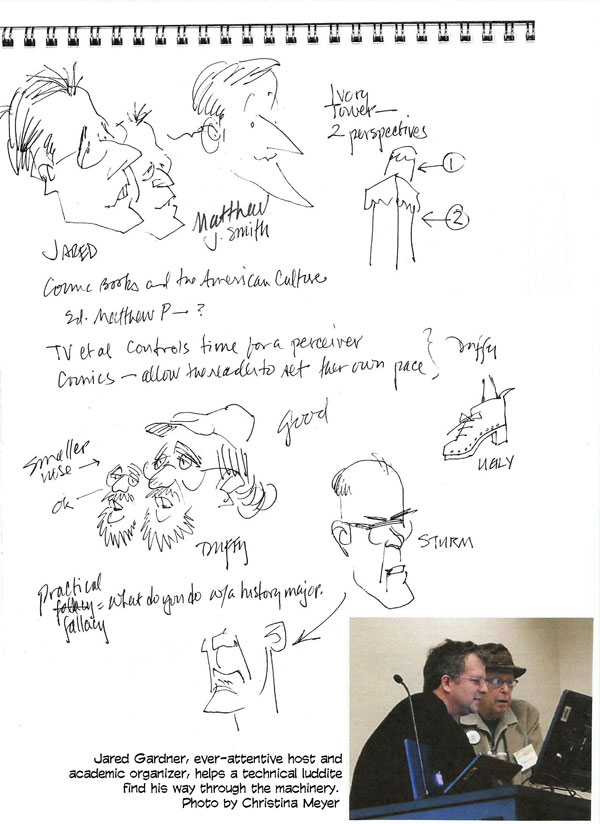 Ivory
Tower—
2 perspectives
1
2
Matthew
J. Smith
JARED
Comic Books and the American Culture
Ed. Matthew P— ?
TV et al controls time for a perceiver
Comics — allow the reader to set their own pace
Duffy
Good
UGLY
Smaller
nose
OK
Duffy
STURM
Practical
fallacy = what do you do w/a history major.
fallacy
Jared Gardner, ever-attentive host and
academic organizer, helps a technical luddite
find his way through the machinery.
Photo by Christina Meyer